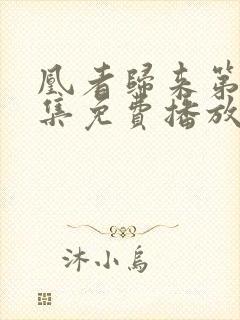 凰者歸来第
集免費播放
沐小烏